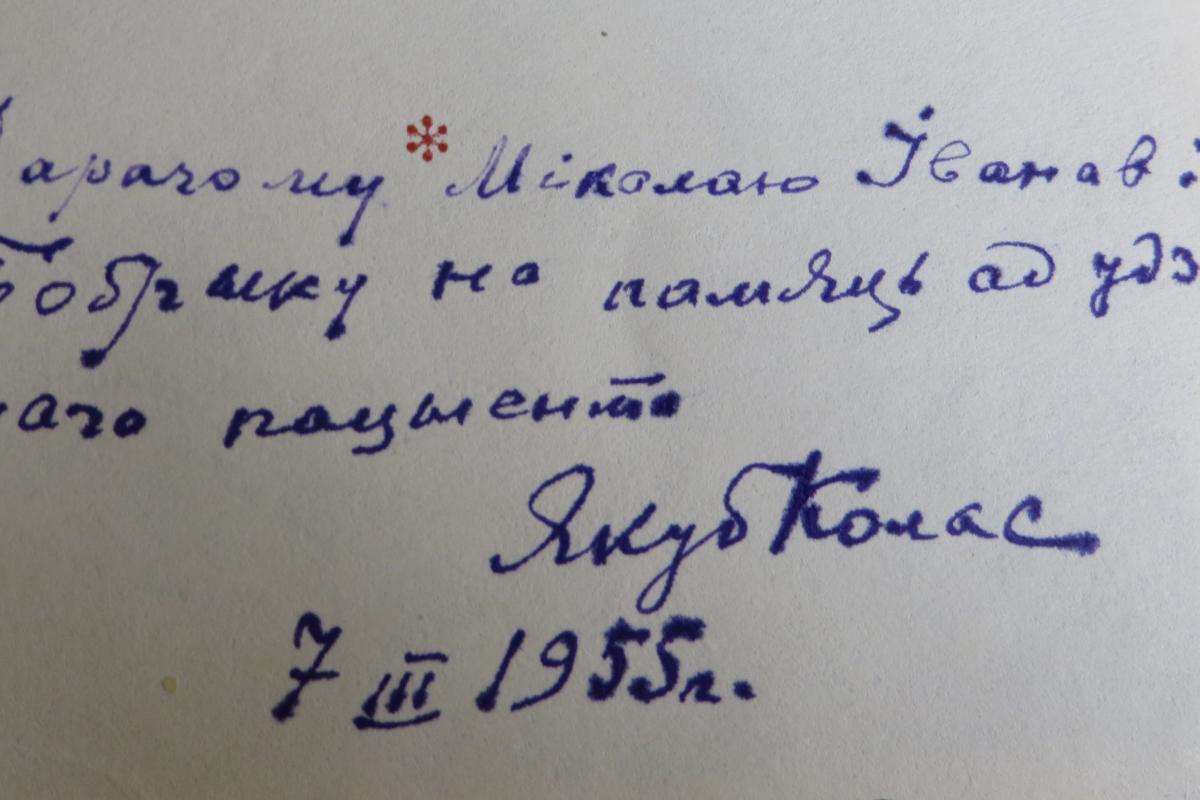 Дарагому Мікалаю Іванаві
Бобрыку на памяць ад удз
нага пацыента
Якуб Колас
7 III 1955г.